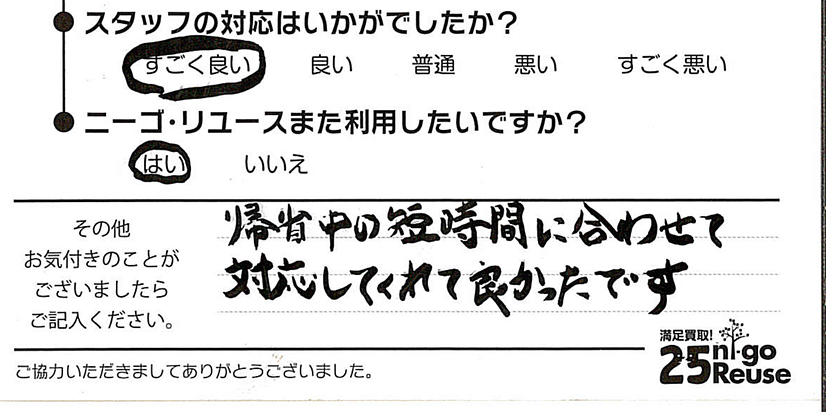 スタッフの対応はいかがでしたか？
すごく良い 良い 普通 悪い すごく悪い
ニーゴ・リユースまた利用したいですか？
はい いいえ
その他
お気付きのことが
ございましたら
ご記入ください。
帰省中の短時間に合わせて
対応してくれて良かったです
ご協力いただきましてありがとうございました。
満足買取!
25 ni-go
Reuse